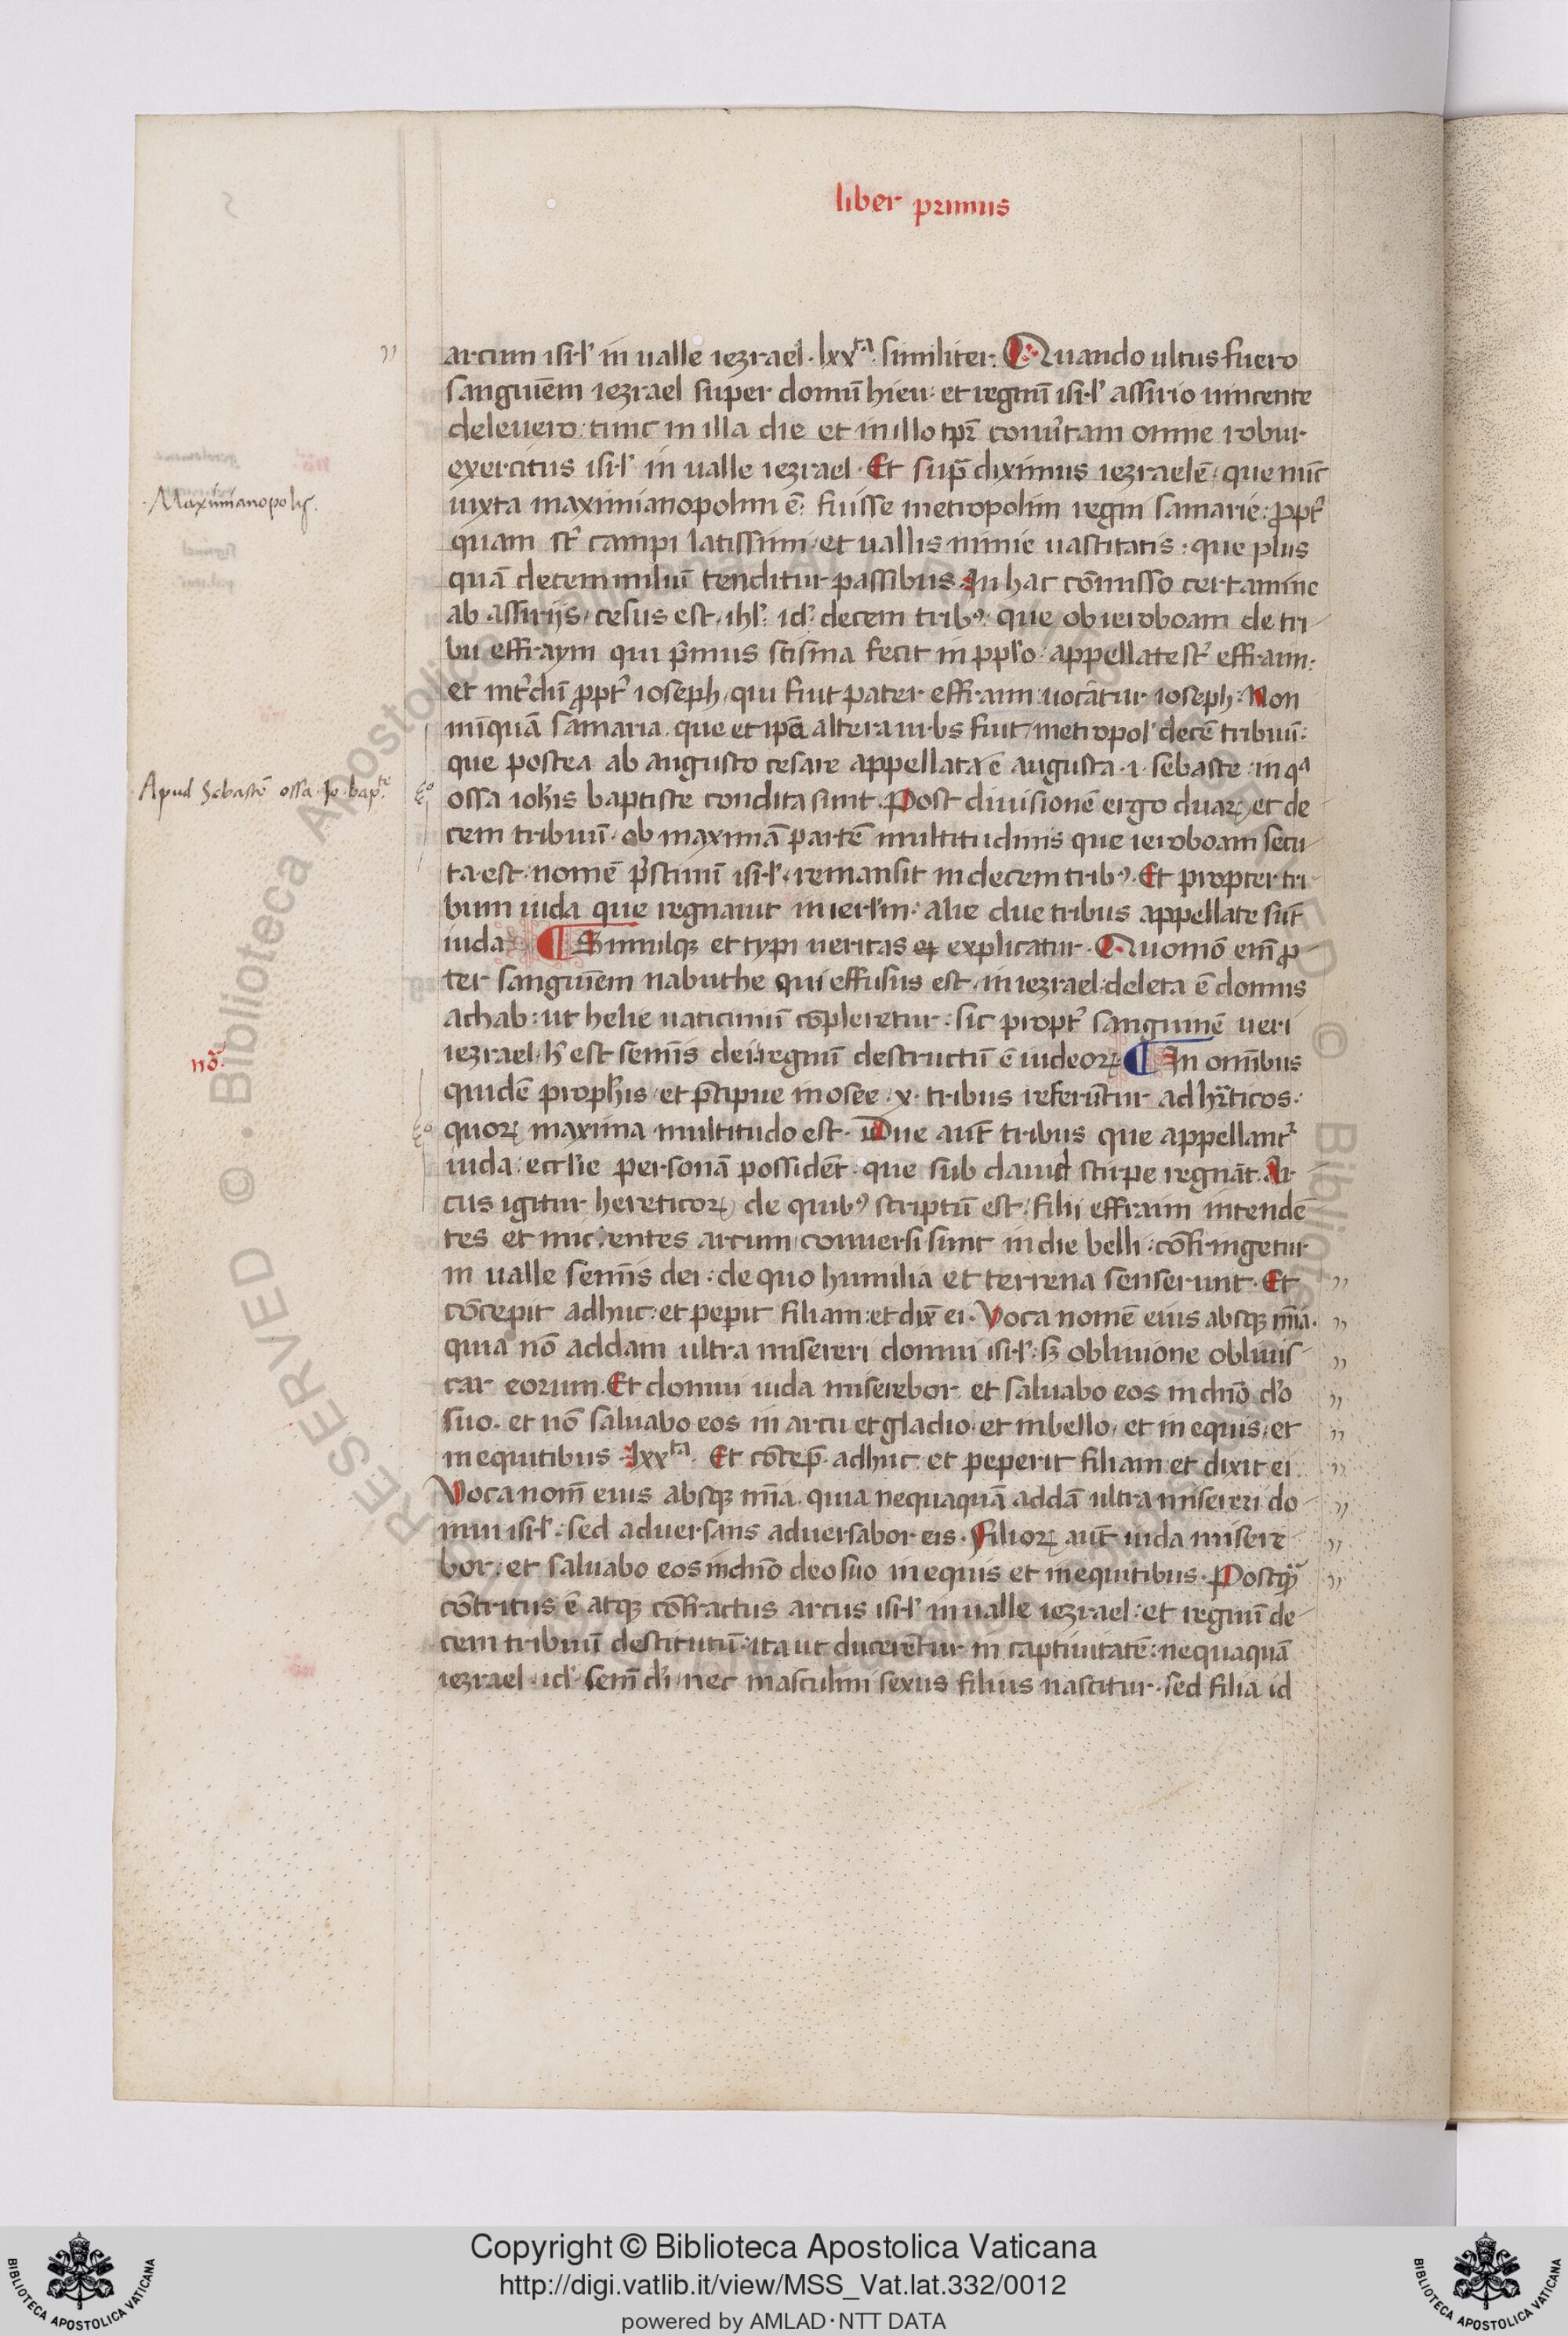 liber primus
arcum isrl' in ualle iezrael. lxxta. similiter. Quando ultus fuero
sanguiēm iezrael super domū hieu. et regnū isrl' assirio uincente
deleuero. tunc in illa die et in illo tp̄r conu̓tam omne robur
exercitus isrl' in ualle iezrael. Et sup̄ diximus iezraelē, que nūc
iuxta maximianopolim ē. fuisse metropolim regni samarie. ꝓpt̓
quam st̓ campi latissimi, et uallis nimie uastitatis. que plus
quā decem miliū tenditur passibus. In hac cōmisso certamine
ab assirijs, cesus est, ihl'. id'. decem tribꝰ. que ob ieroboam de tri
bu effraym qui p̓mus scisma fecit in ppl'o. appellate st̓ effraim.
et int̓dū ꝓpt̓ ioseph, qui fuit pater effraim uocātur ioseph. Non
nūquā samaria. que et ip̄a altera urbs fuit, metropol' decē tribuū.
que postea ab augusto cesare appellata ē augusta .i. sebaste. in qa
ossa ioh̄is baptiste condita sunt. Post diuisionē ergo duaꝝ et de
cem tribuū, ob maximā partē multitudinis que ieroboam secu
ta est. nomē p̓stinū isrl', remansit in decem tribꝰ. Et propter tri
bum iuda que regnauit in ierl'm. alie due tribus appellate sūt
iuda. ¶ Simulqꝫ et typi ueritas explicatur. Quomō em̄ ꝓ
ter sanguīem nabuthe qui effusus est, in iezrael. deleta ē domus
achab. ut helie uaticiniū cōpleretur. sic propt̓ sanguinē ueri
iezrael, h̓ est semīs dei. regnū destructū ē iudeoꝝ. ¶ In omībus
quidē proph̄is, et p̄cipue in osee .x. tribus referūtur ad hr̄ticos.
quoꝝ maxima multitudo est. Due aut̄ tribus que appellant̓
iuda. eccl'ie personā possidēt. que sub dauid stirpe regnāt. Ar
cus igitur hereticoꝝ de quibꝰ scriptū est. filij effraim intendē
tes et mittentes arcum, conuersi sunt in die belli. cōfringetur
in ualle semīs dei. de quo humilia et terrena senserunt. Et
cōcepit adhuc. et pepit filiam. et dix̄ ei. Voca nomē eius absqꝫ mīa.
quia nō addam ultra misereri domui isrl'. sꝫ obliuione obliuis
car eorum. Et domui iuda miserebor et saluabo eos in dn̄o d'o
suo. et nō saluabo eos in arcu et gladio. et in bello, et in equis, et
in equitibus. lxxta. Et cōcep̄. adhuc et peperit filiam et dixit ei.
Voca nom̄ eius absqꝫ mīa. quia nequaquā addā ultra misereri do
mui isrl'. sed aduersans aduersabor eis. Filioꝝ aut̄ iuda misere
bor. et saluabo eos in dn̄o deo suo in equis et in equitibus. Postqꝫ
cōtritus ē atqꝫ cōfractus arcus isrl' in ualle iezrael. et regnū de
cem tribuū destitutū. ita ut ducerētur in captiuitatē. nequaquā
iezrael .id'. sem̄ di'. nec masculini sexus filius nascitur. sed filia id
Maximianopolis.
Apud Sebastē ossa Jo. bapte.
nō.
© Biblioteca Apostolica Vaticana
Copyright © Biblioteca Apostolica Vaticana
http://digi.vatlib.it/view/MSS_Vat.lat.332/0012
powered by AMLAD·NTT DATA
BIBLIOTECA APOSTOLICA VATICANA
BIBLIOTECA APOSTOLICA VATICANA